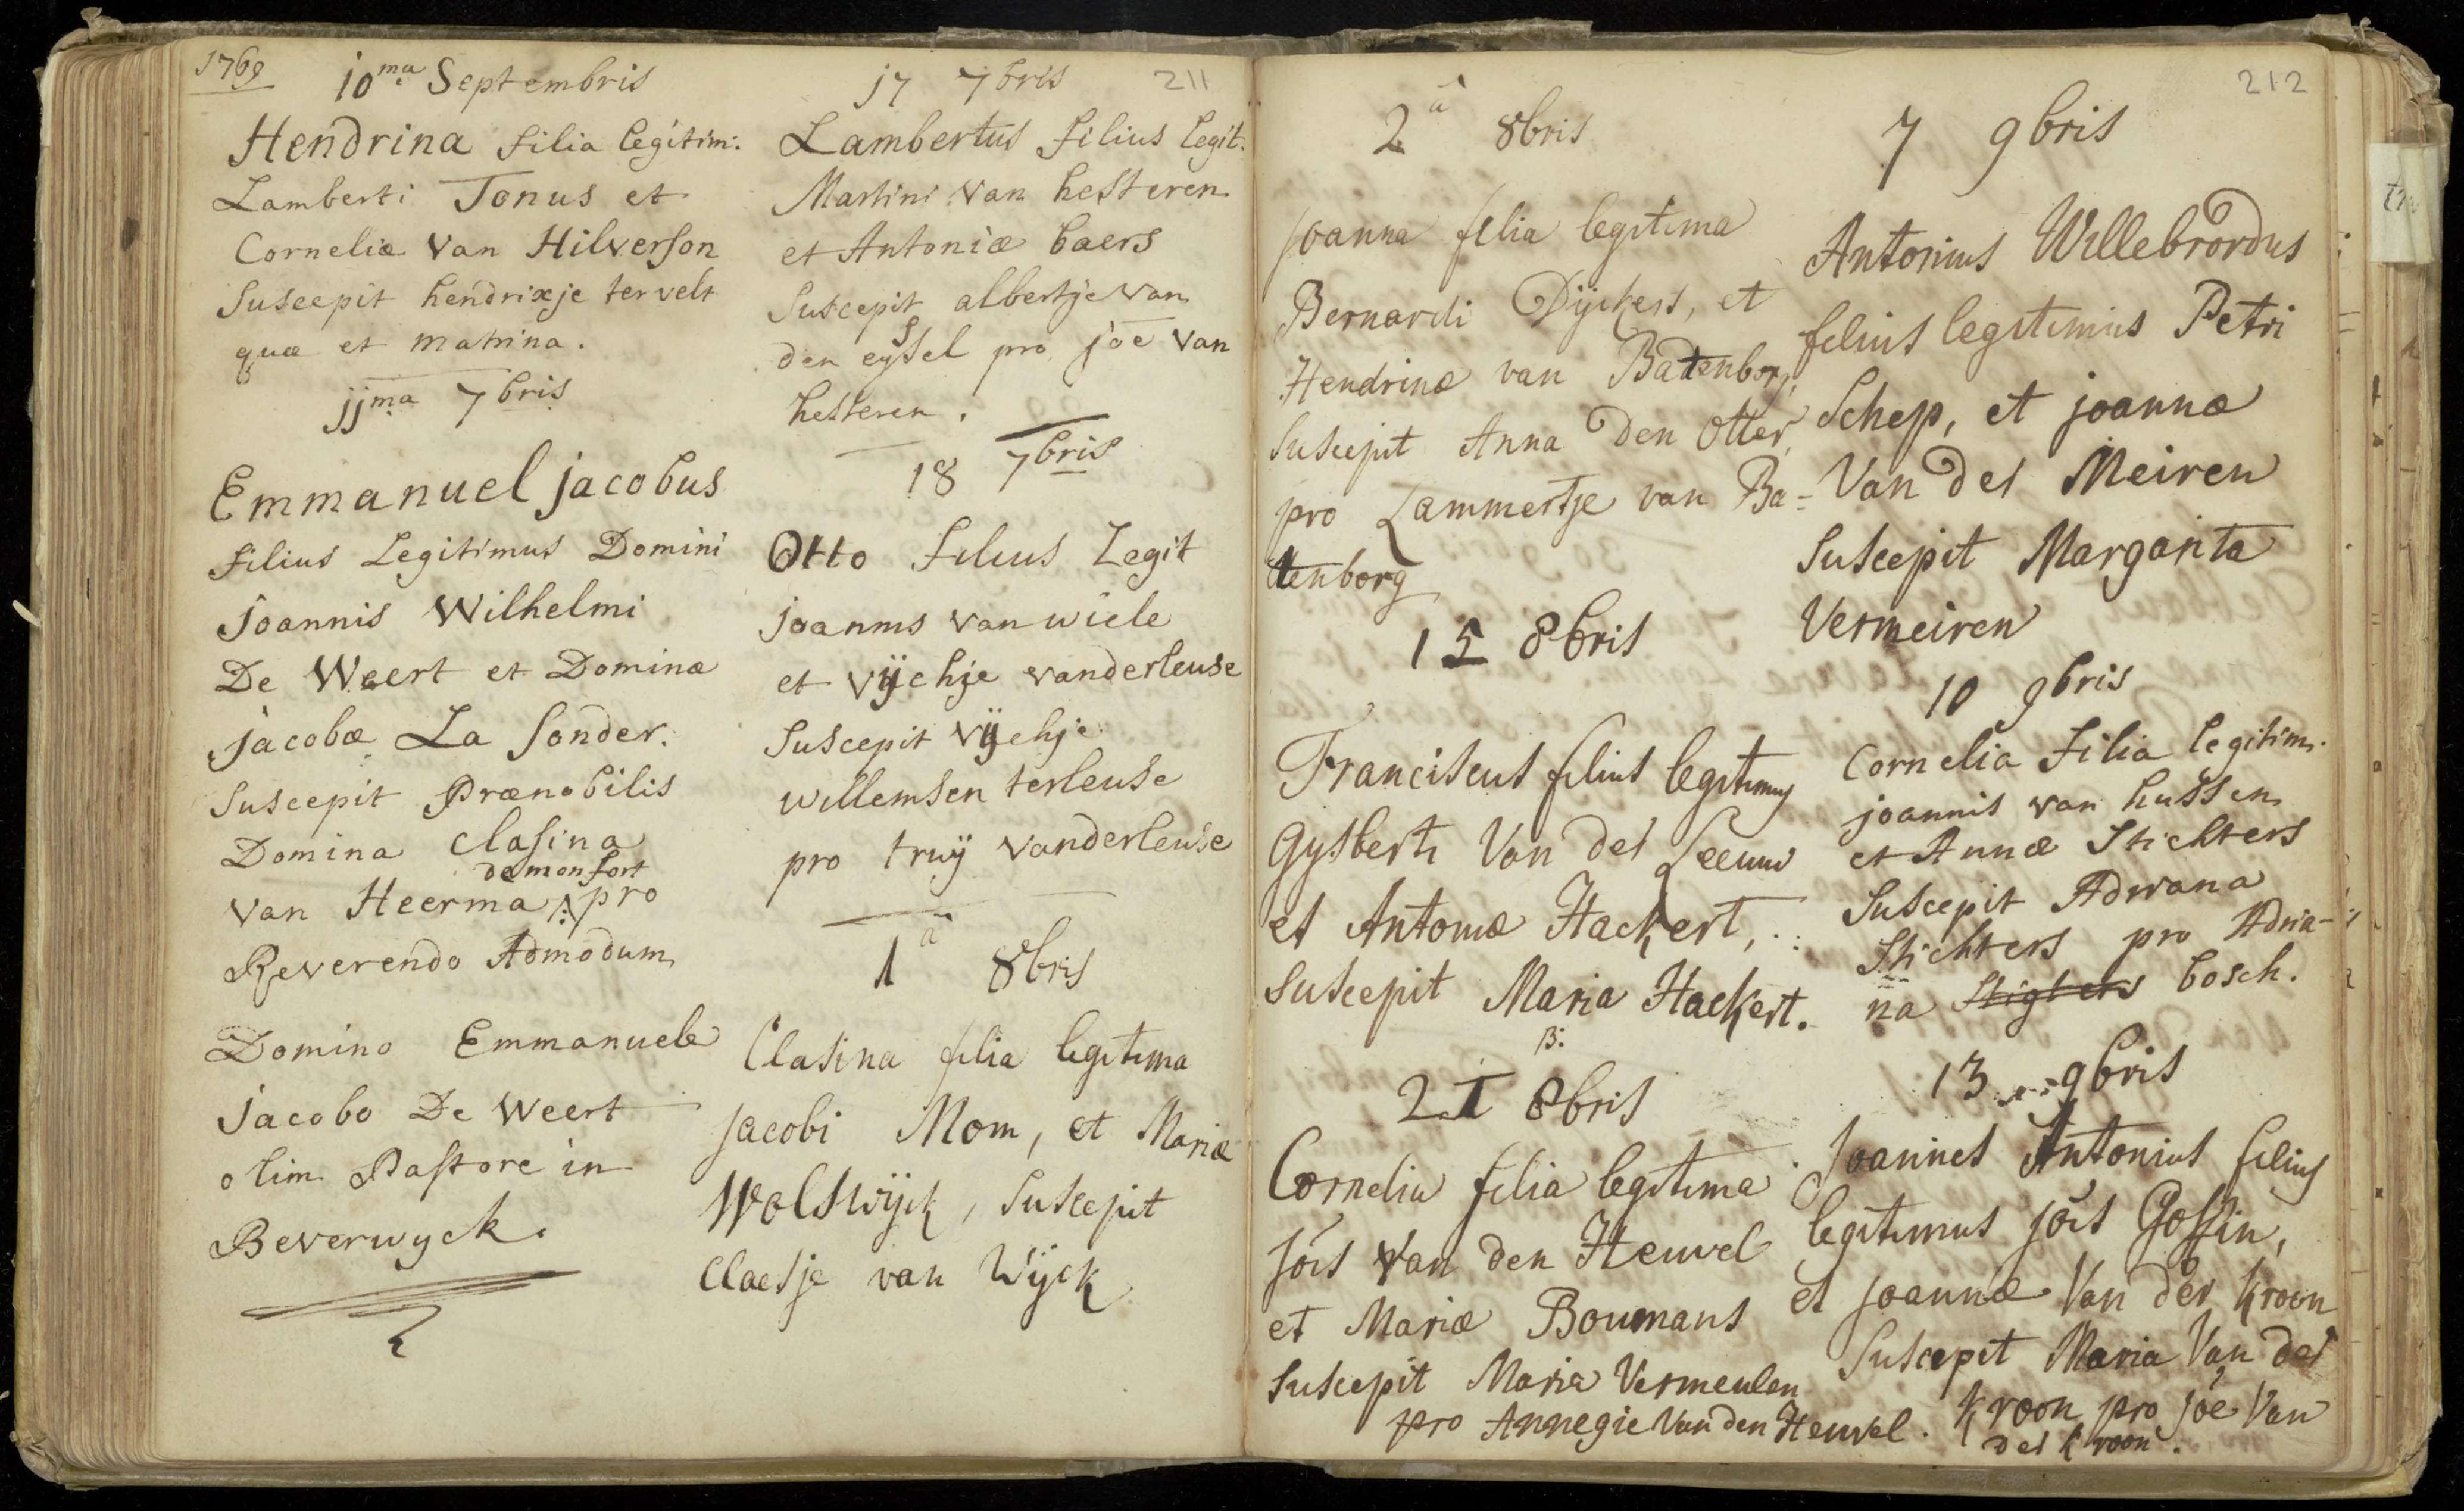 1769
10ma Septembris
Hendrina filia legitim.
Lamberti Tonus et
Corneliæ van Hilverson
Suscepit hendrixje tervelt
quæ et matrina.
jjma 7bris
Emmanuel jacobus
filius Legitimus Domini
Joannis Wilhelmi
De Weert et Dominæ
jacobæ La Sonder.
Suscepit Prænobilis
Domina Clasina
de monfort
van Heerma pro
Reverendo Admodum
Domino Emmanuele
Jacobo De Weert
olim Pastore in
Beverwyck.
211
17 7bris
Lambertus filius legit.
Martini van hesteren
et Antoniæ baers
Suscepit albertje van
den eyssel pro joe van
hesteren.
18 7bris
Otto filius Legit
joannis van wiele
et vijchje vanderleuse
Suscepit vijchje
willemsen terleuse
pro truij vanderleuse
1a 8bris
Clasina filia legitima
Jacobi Mom, et Mariæ
Wolswijck, Suscepit
Claesje van Wijck
2a 8bris
Joanna filia legitima
Bernardi Dijckers, et
Hendrinæ van Batenborg,
Suscepit Anna Den Otter,
pro Lammertje van Ba-
tenborg
15 8bris
Franciscus filius legitimus
Gysberti Van der Leeuw
et Antoniæ Hackert,
Suscepit Maria Hackert.
B:
21 8bris
Cornelia filia legitima
Jois Van den Heuvel
et Mariæ Boumans
Suscepit Maria Vermeulen
pro Annegie Van den Heuvel.
212
7 9bris
Antonius Willebrordus
filius legitimus Petri
Schep, et joannæ
Van der Meiren
Suscepit Margarita
Vermeiren
10 9bris
Cornelia Filia legitim.
joannis van hussen
et Annæ Stichters
Suscepit Adriana
Stichters pro Adria-
na Stigters bosch.
13 9bris
Joannes Antonius filius
legitimus jois Goffin,
et joannæ Van der Kroon
Suscepit Maria Van der
Kroon pro joe Van
der Kroon.